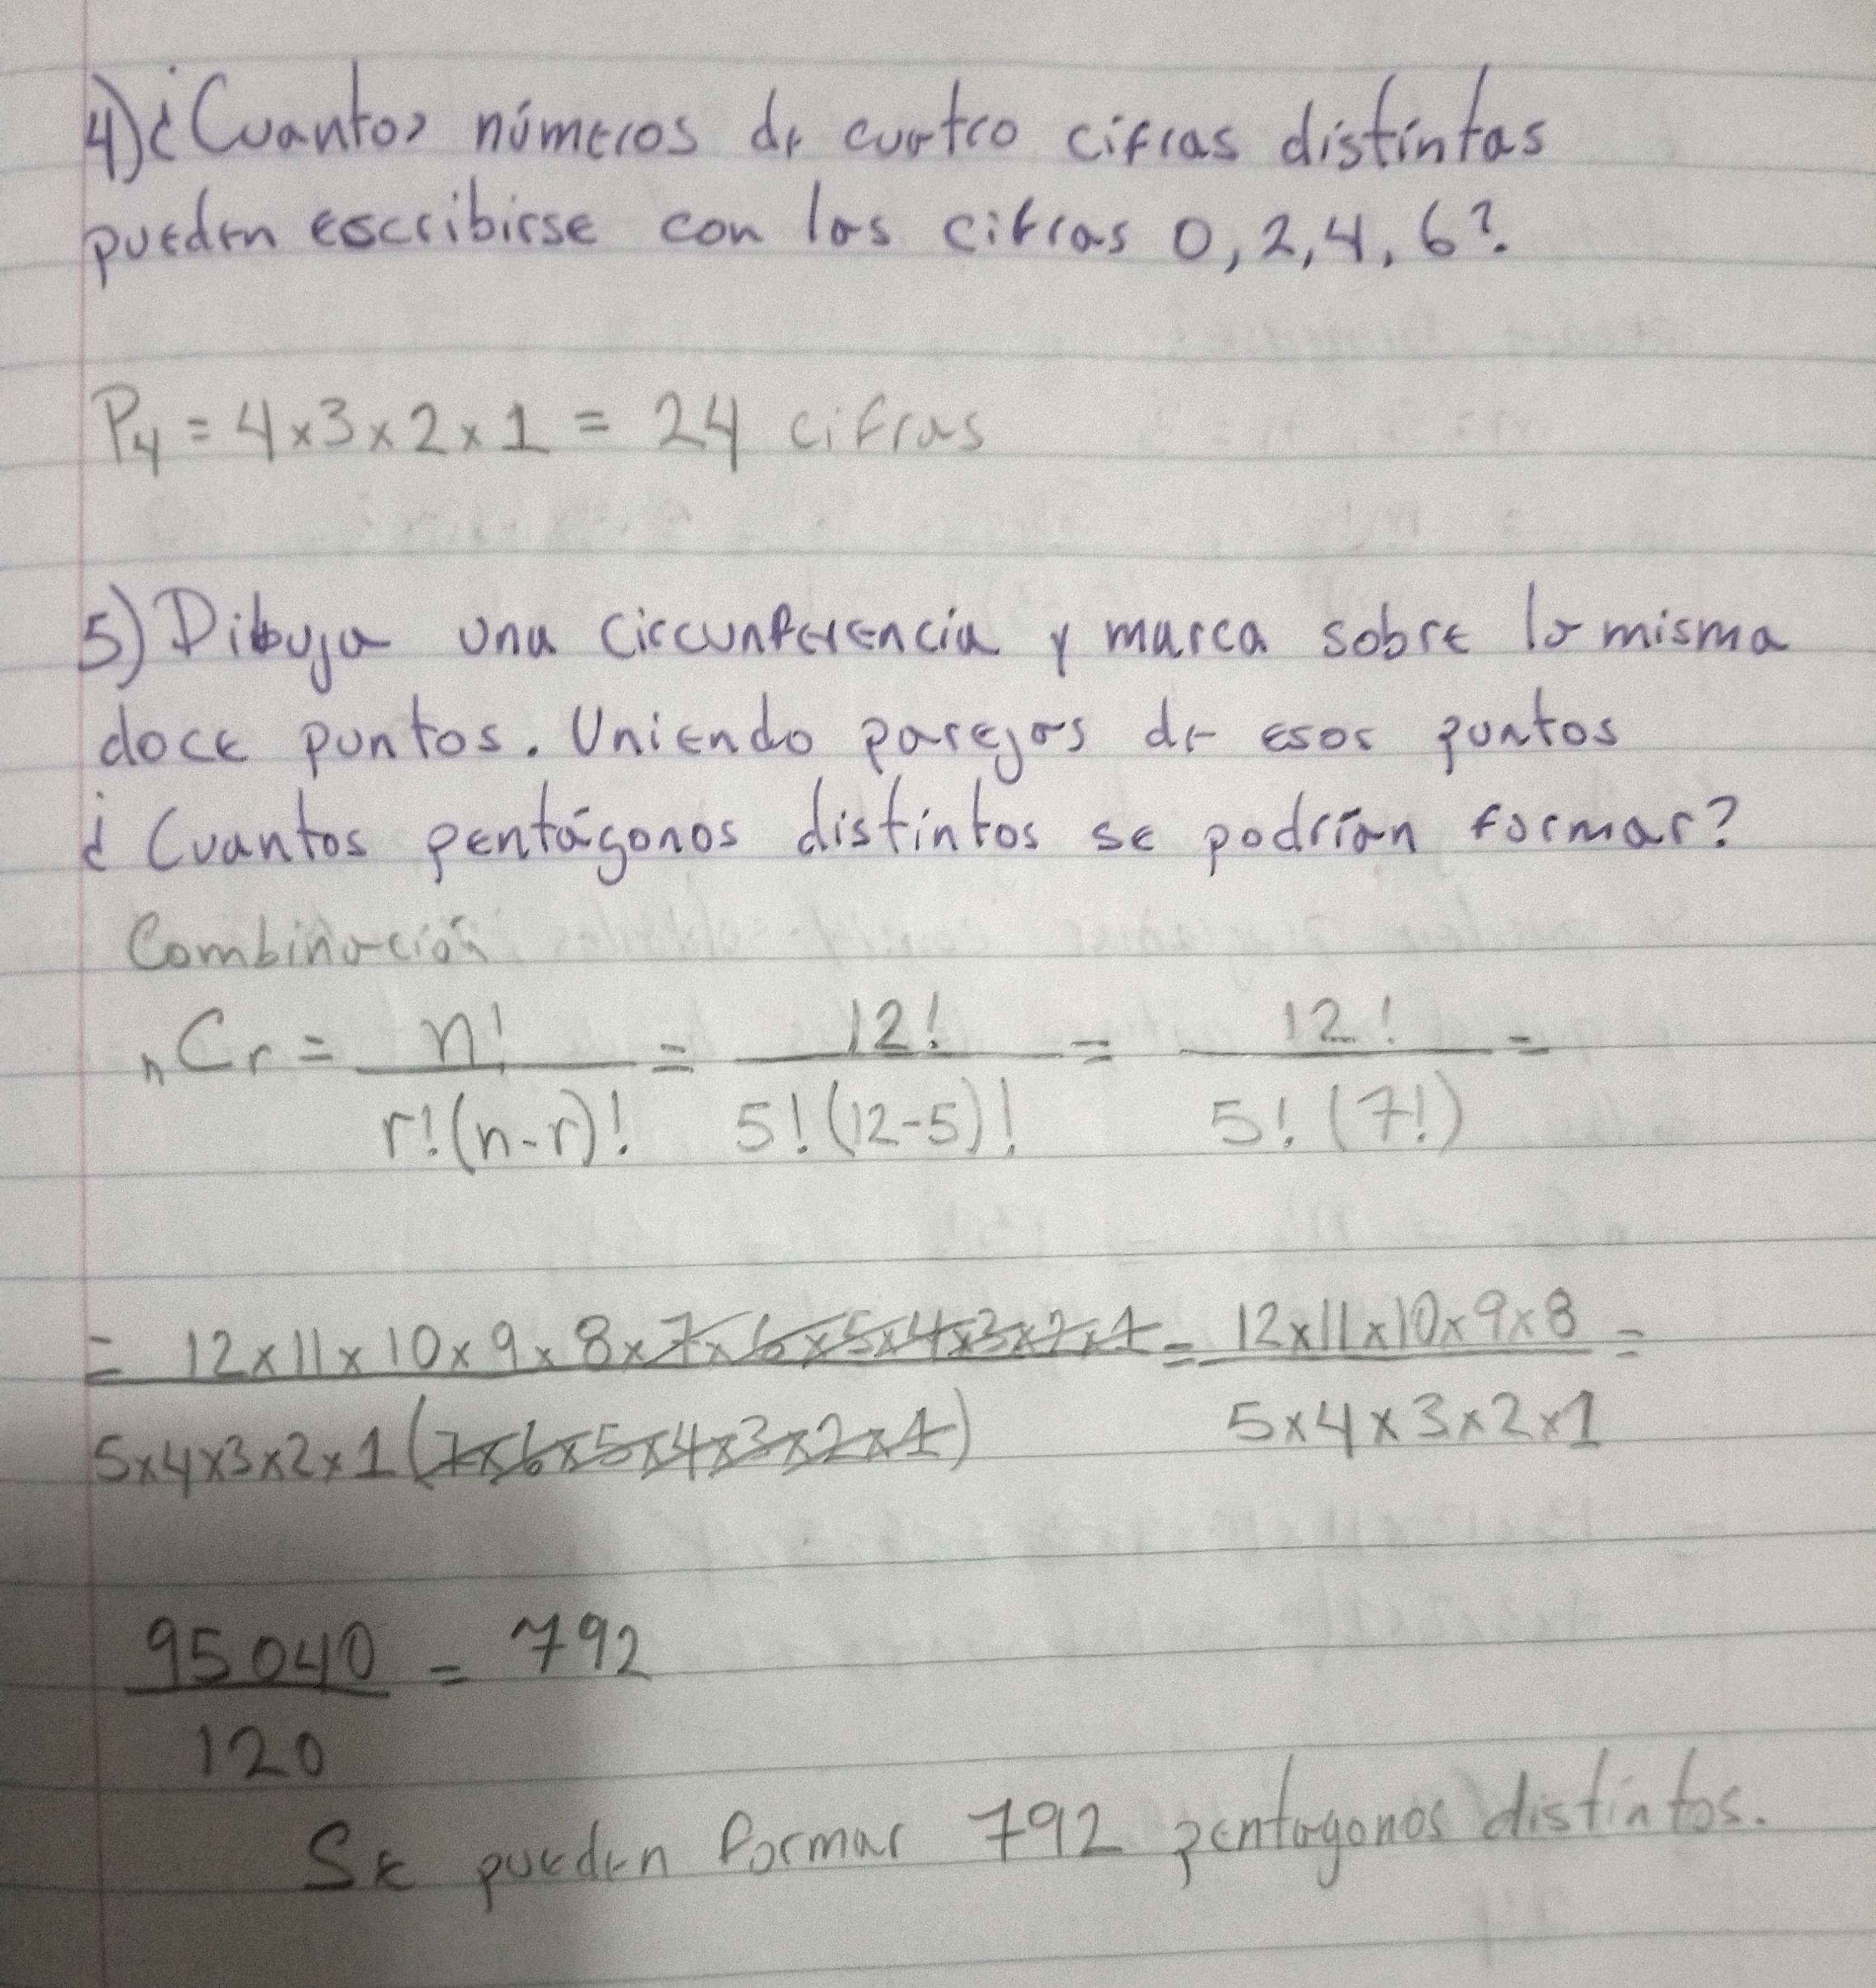 4) ¿Cuantos números de cuatro cifras distintas
pueden escribirse con las cifras 0, 2, 4, 6?.
P4 = 4 x 3 x 2 x 1 = 24 cifras
5) Dibuja una circunferencia y marca sobre la misma
doce puntos. Uniendo parejas de esos puntos
¿Cuantos pentágonos distintos se podrían formar?
Combinación
nCr = n! / r!(n-r)! = 12! / 5!(12-5)! = 12! / 5!(7!) =
= 12x11x10x9x8x7x6x5x4x3x2x1 / 5x4x3x2x1(7x6x5x4x3x2x1) = 12x11x10x9x8 / 5x4x3x2x1 =
95040 / 120 = 792
Se pueden formar 792 pentagonos distintos.